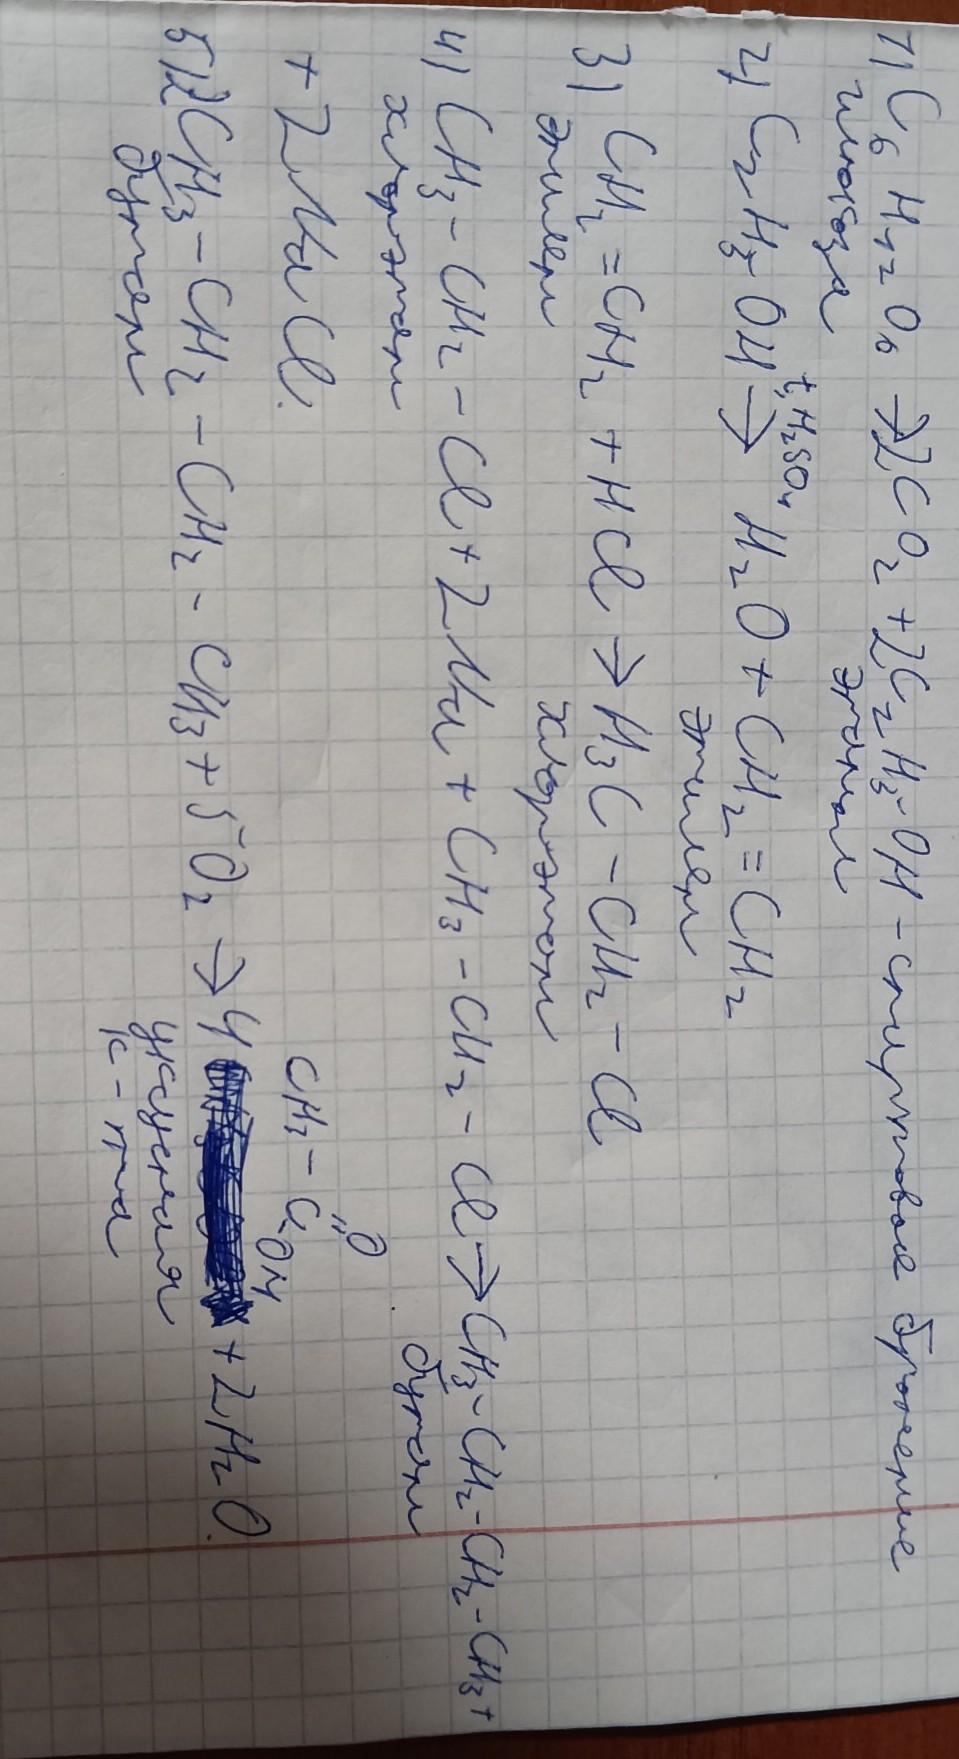 1) C₆H₁₂O₆ → 2CO₂ + 2C₂H₅OH - спиртовое брожение
глюкоза этанол
t, H₂SO₄
2) C₂H₅OH → H₂O + CH₂=CH₂
этилен
3) CH₂=CH₂ + HCl → H₃C-CH₂-Cl
этилен хлорэтан
4) CH₃-CH₂-Cl + 2Na + CH₃-CH₂-Cl → CH₃-CH₂-CH₂-CH₃ +
хлорэтан бутан
+ 2NaCl.
O
CH₃-C
OH
5) 2CH₃-CH₂-CH₂-CH₃ + 5O₂ → 4 + 2H₂O.
бутан уксусная
к-та